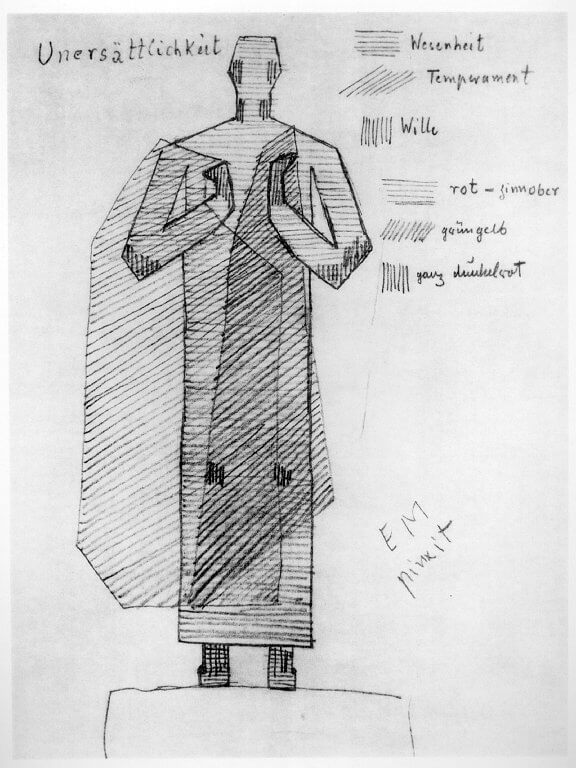 Unersättlichkeit
Wesenheit
Temperament
Wille
rot - zinnober
grüngelb
ganz dunkelrot
E M
pinxit